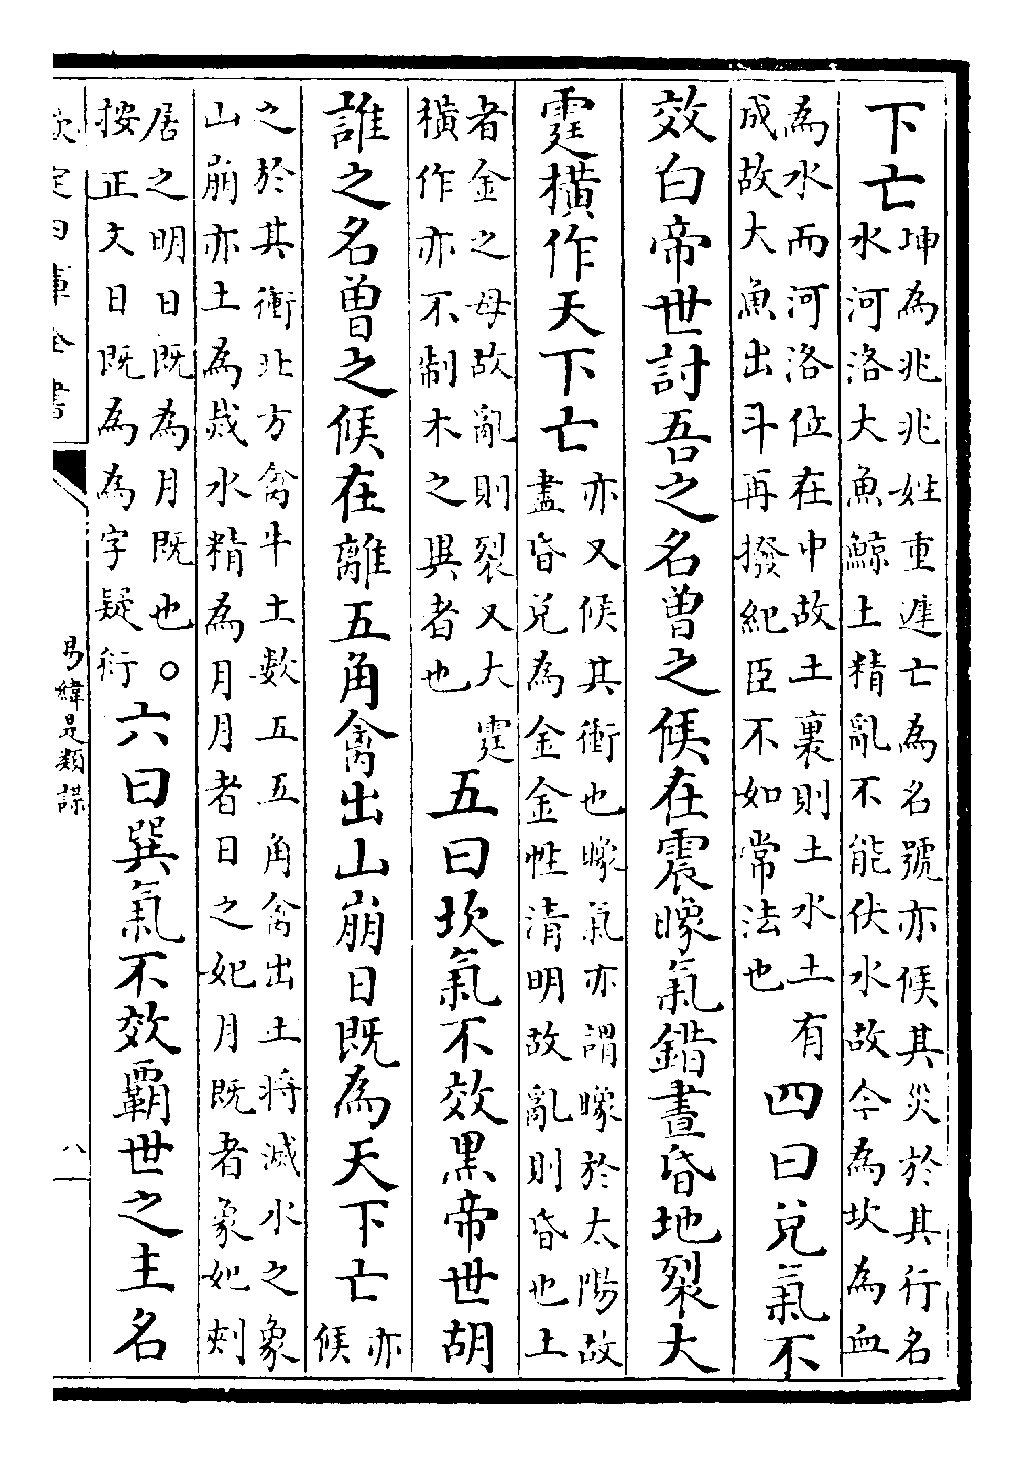 下亡坤為兆兆姓重遲亡為名號亦候其災於其行名
水河洛大魚鯨土精亂不能伏水故今為坎為血
為水而河洛位在中故土裏則土水土有
成故大魚出斗再撥紀臣不如常法也
四曰兌氣不
效白帝世討吾之名曽之候在震矇氣錯晝昏地裂大
霆橫作天下亡亦又候其衝也矇氣亦謂矇於太陽故
盡昏兌為金金性清明故亂則昏也土
者金之母故亂則裂又大霆
橫作亦不制木之異者也
五曰坎氣不效黒帝世胡
誰之名曽之候在離五角禽出山崩日既為天下亡亦
候
之於其衝北方禽牛土數五五角禽出土將滅水之象
山崩亦土為烖水精為月月者日之妃月既者象妃刺
居之明日既為月既也○
按正文日既為為字疑衍
六曰巽氣不效霸世之主名
欽定四庫全書
易緯是類謀
八